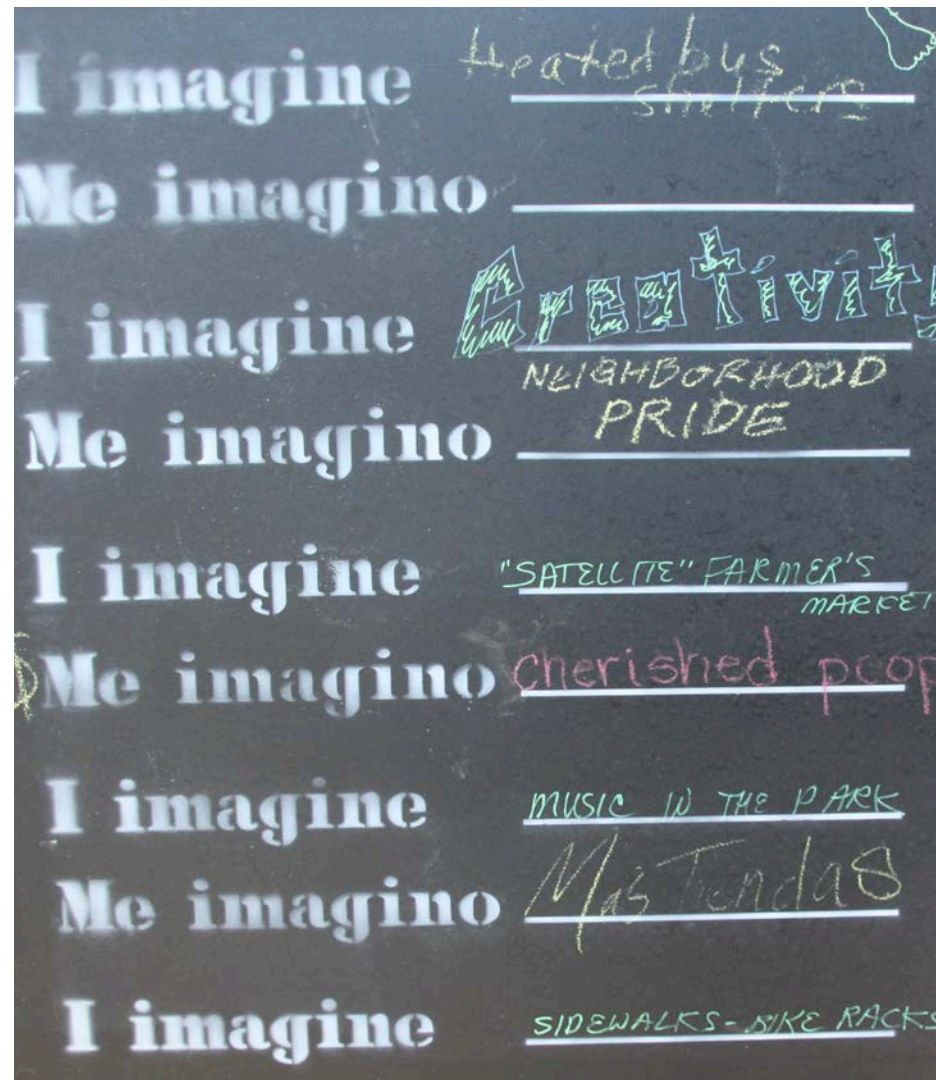 I imagine Heated bus
shelters
Me imagino
I imagine Creativity
Me imagino NEIGHBORHOOD
PRIDE
I imagine "SATELLITE" FARMER'S
MARKET
Me imagino cherished
I imagine MUSIC IN THE PARK
Me imagino Mas Tiendas
I imagine SIDEWALKS - BIKE RACKS